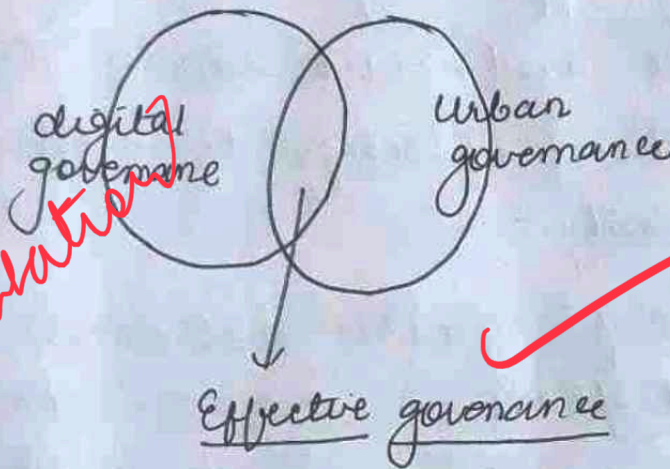 digital
governane
Urban
governance
lation
Effective govenance